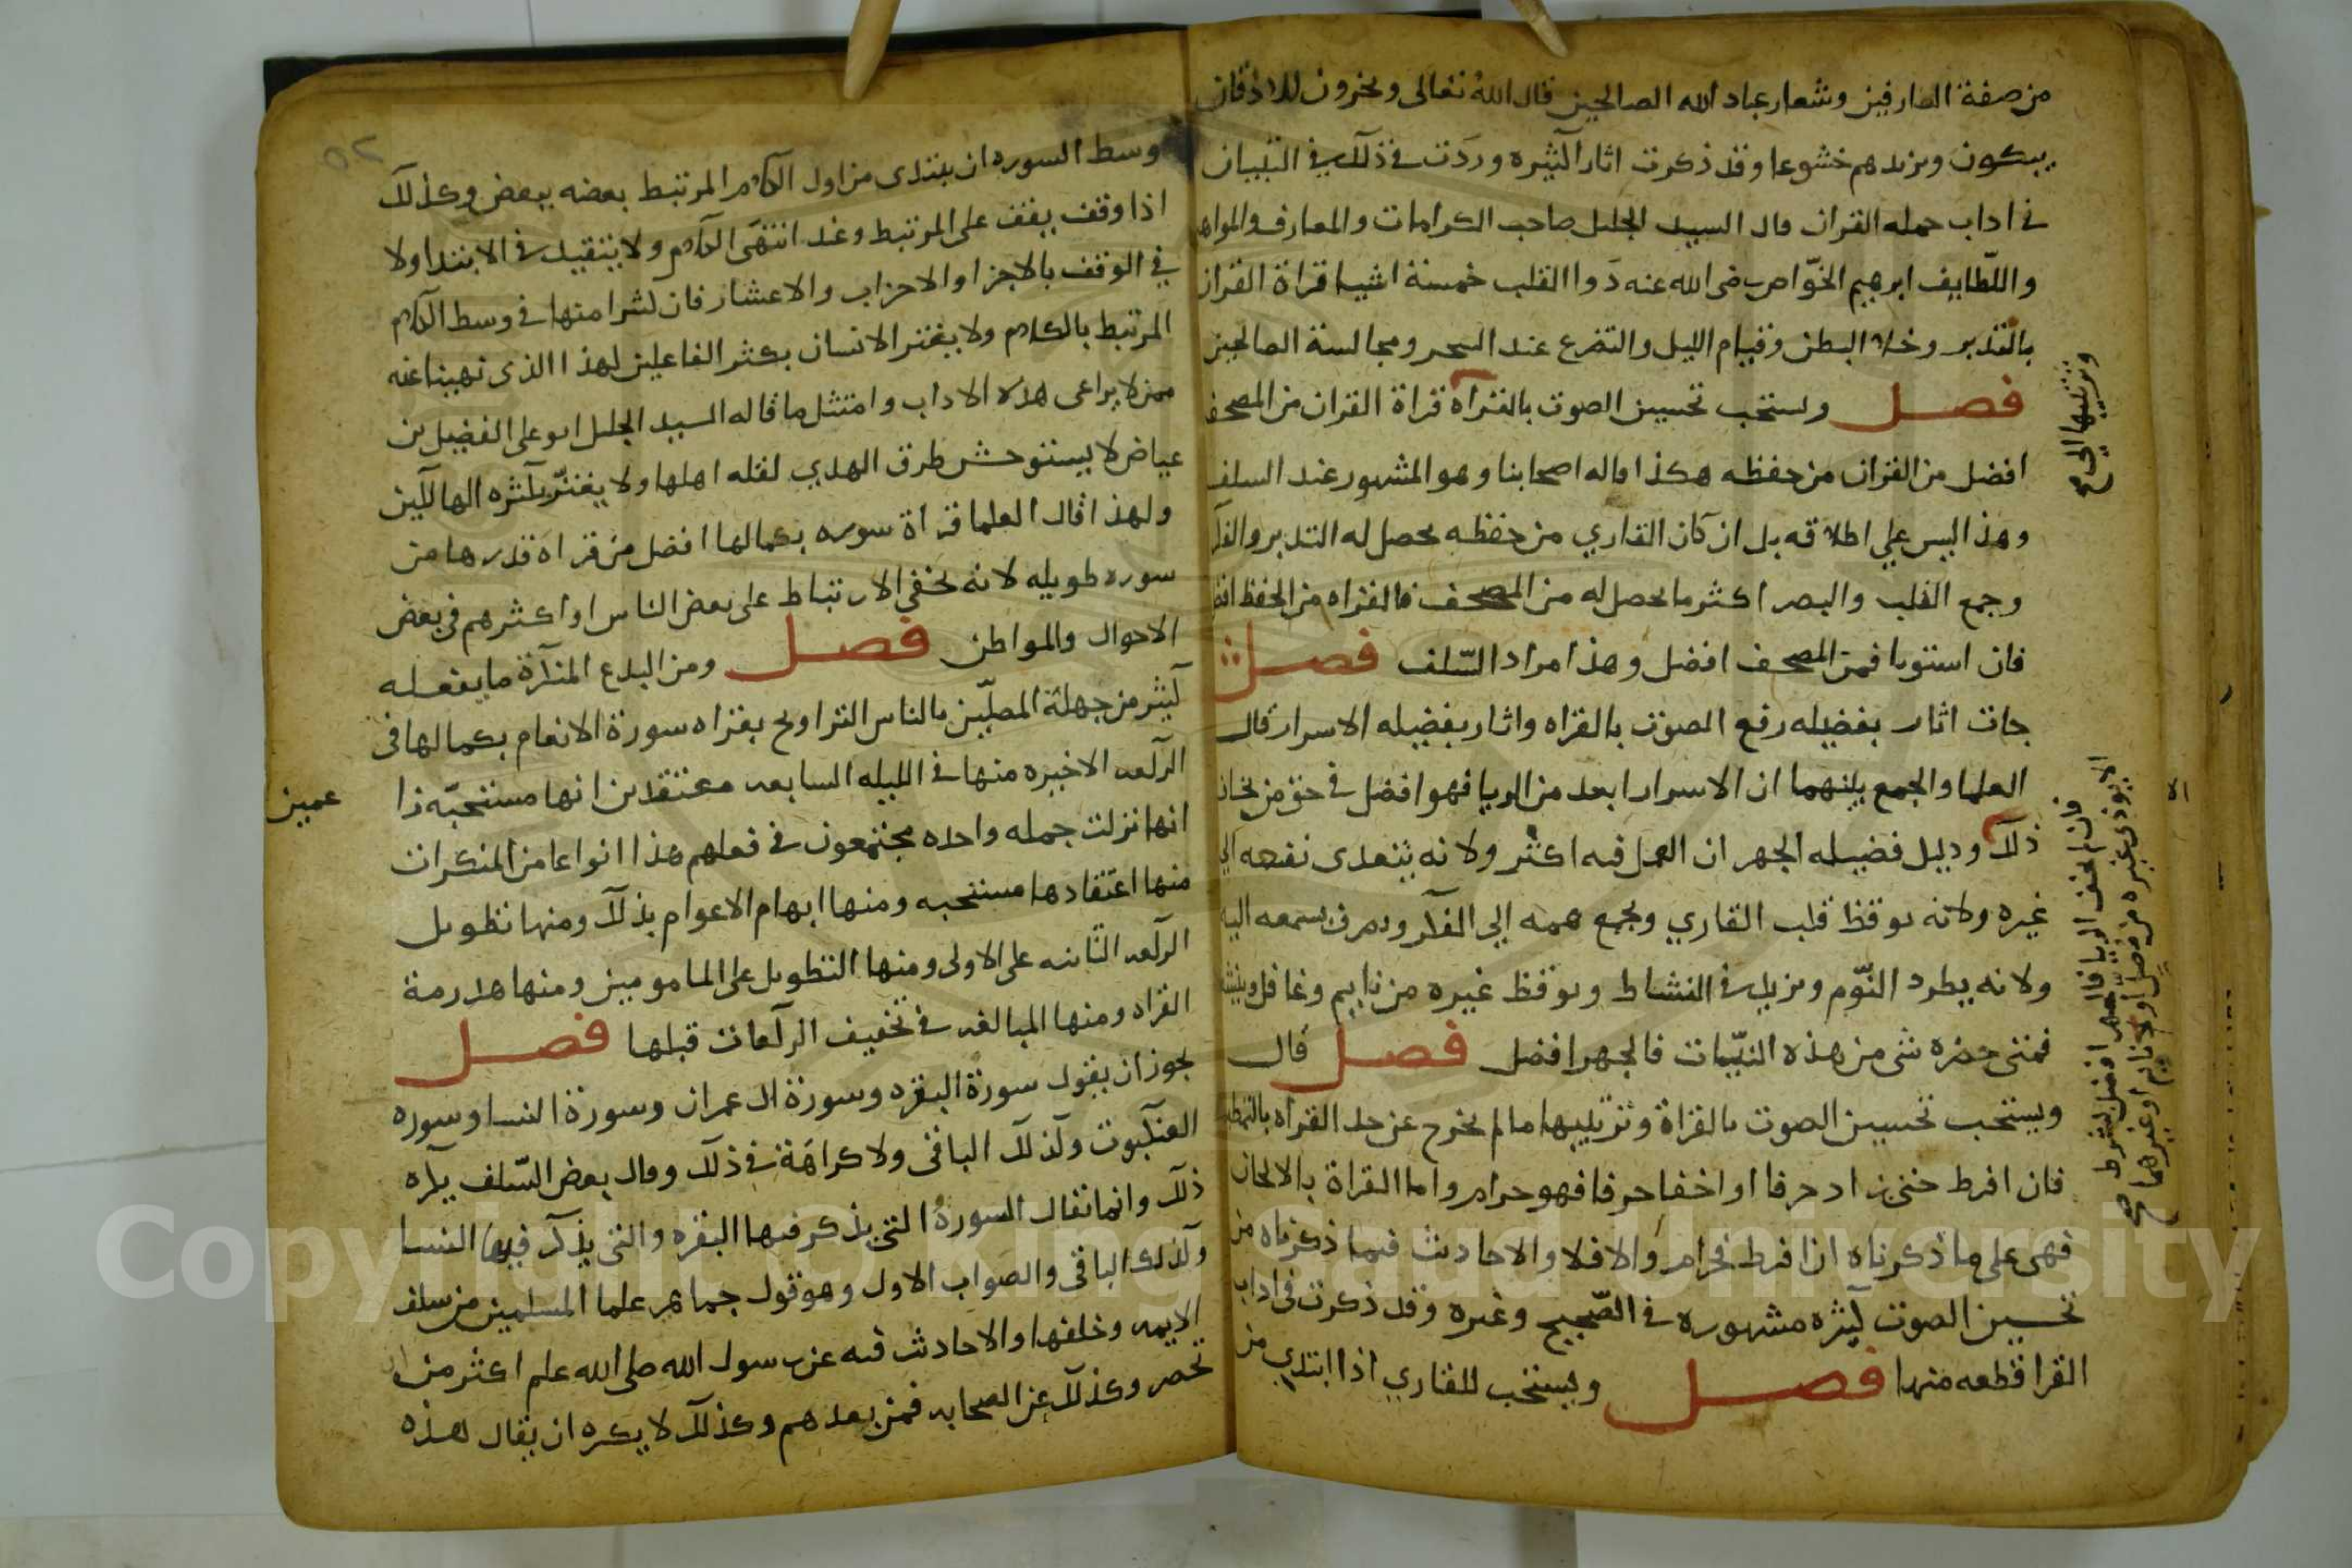 من صفة العارفين وشعار عباد الله الصالحين قال الله تعالى ويخرون للاذقان
يبكون ويزيدهم خشوعا وقد ذكرت اثارا كثيره وردت في ذلك في التبيان
في اداب حمله القران قال السيد الجليل صاحب الكرامات والمعارف والمواهب
واللطايف ابرهيم الخوّاص رضى الله عنه دوا القلب خمسة اشيا قراة القران
بالتدبر وخلا البطن وقيام الليل والتضرع عند السحر ومجالسة الصالحين
فصل ويستحب تحسين الصوت بالقراة قراة القران من المصحف
افضل من القران من حفظه هكذا قاله اصحابنا وهو المشهور عند السلف
وهذا ليس علي اطلاقه بل ان كان القاري من حفظه يحصل له التدبر والفكر
وجمع القلب والبصر اكثر ما يحصل له من المصحف فالقراه من الحفظ افضل
فان استويا فمن المصحف افضل وهذا مراد السّلف فصل
جات اثار بفضيله رفع الصوت بالقراه واثار بفضيله الاسرار قال
العلما والجمع بينهما ان الاسرار ابعد من الريا فهو افضل في حق من يخاف
ذلك ودليل فضيله الجهر ان العمل فيه اكثر ولانه يتعدى نفعه الي
غيره ولانه يوقظ قلب القاري ويجمع همه إلى الفكر ويصرف سمعه اليه
ولانه يطرد النّوم ويزيد في النشاط ويوقظ غيره من نايم وغافل وينشطه
فمتى حضره شى من هذه النيّات فالجهر افضل فصل قال
ويستحب تحسين الصوت بالقراة وتزيينها ما لم يخرج عن حد القراه بالتمطيط
فان افرط حتى زاد حرفا او اخفا حرفا فهو حرام واما القراة بالالحان
فهى على ما ذكرناه ان افرط فحرام والا فلا والاحاديث فيما ذكرناه من
تحسين الصوت كثيره مشهوره في الصّحيح وغيره وقد ذكرت في اداب
القرا قطعه منها فصل ويستحب للقاري اذا ابتدي من
وتزيينها الى صح
فان لم يخف الريا فالجهر افضل بشرط
الا يوذى غيره من مصل او نايم او غيرهما صح
٥٢
وسط السوره ان يبتدى من اول الكلام المرتبط بعضه ببعض وكذلك
اذا وقف يقف على المرتبط وعند انتهى الكلام ولا يتقيد في الابتدا ولا
في الوقف بالاجزا والاحزاب والاعشار فان كثيرا منها في وسط الكلام
المرتبط بالكلام ولا يغتر الانسان بكثر الفاعلين لهذا الذى نهينا عنه
ممن لا يراعى هذه الاداب وامتثل ما قاله السيد الجليل ابو على الفضيل بن
عياض لا يستوحش طرق الهدي لقله اهلها ولا يغترّ بكثره الهالكين
ولهذا قال العلما قراة سوره بكمالها افضل من قراة قدرها من
سوره طويله لانه يخفي الارتباط على بعض الناس او اكثرهم في بعض
الاحوال والمواطن فصل ومن البدع المنكرة ما يفعله
كثير من جهلة المصلّين بالناس التراويح بقراه سورة الانعام بكمالها فى
الركعه الاخيره منها في الليله السابعه معتقدين انها مستحبّه زا
عمين
انها نزلت جمله واحده مجتمعون في فعلهم هذا انواعا من المنكرات
منها اعتقادها مستحبه ومنها ابهام الاعوام بذلك ومنها تطويل
الركعه الثانيه على الاولى ومنها التطويل على المامومين ومنها هدرمة
القراه ومنها المبالغه في تخفيف الركعات قبلها فصل
يجوز ان يقول سورة البقره وسورة ال عمران وسورة النسا وسوره
العنكبوت وكذلك الباقى ولا كراهَة في ذلك وقال بعض السّلف يكره
ذلك وانما تقال السورة التى يذكر فيها البقره والتى يذكر فيها النسا
وكذلك الباقى والصواب الاول وهو قول جماهر علما المسلمين من سلف
الايمه وخلفها والاحاديث فيه عن رسول الله صلى الله علم اكثر من ان
تحصر وكذلك عن الصحابه فمن بعدهم وكذلك لا يكره ان يقال هذه
Copyright © King Saud University